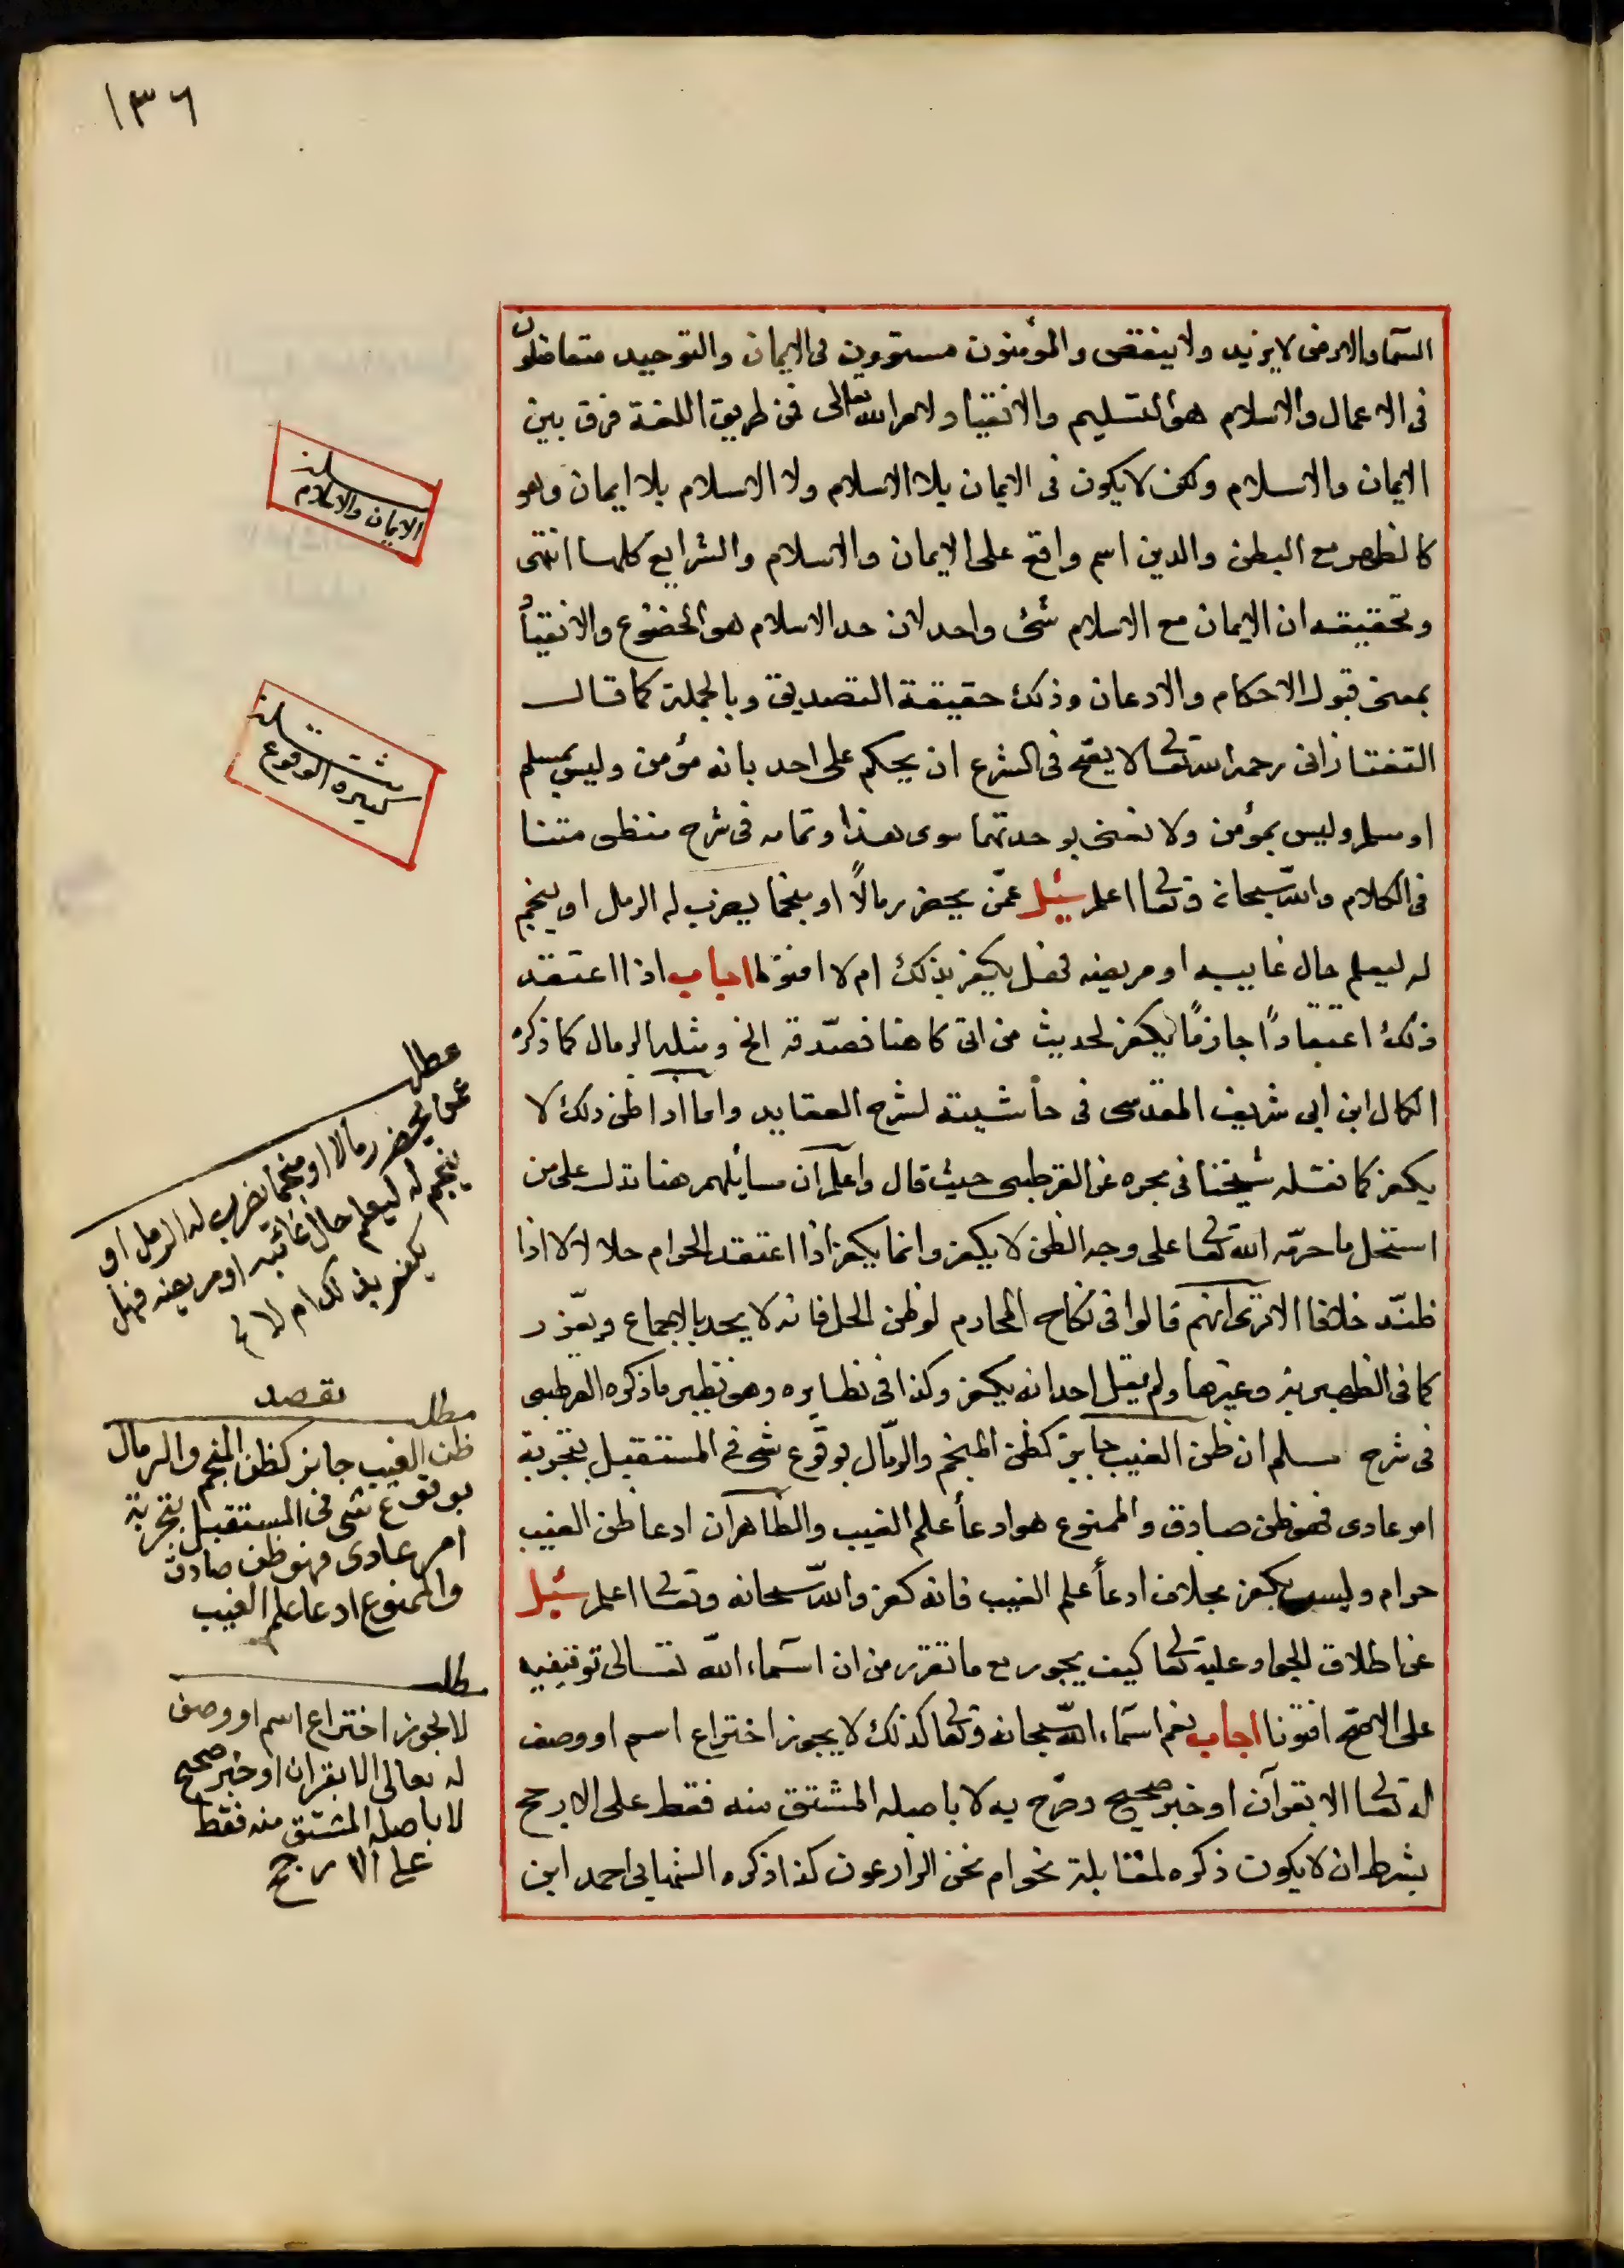 ١٣٦
السما والارض لا يزيد ولا ينقص والمؤمنون مستوون فى الايمان والتوحيد متفاضلون
فى الاعمال والاسلام هو التسليم والانقياد ولامر الله تعالى فمن طريق اللغة فرق بين
الايمان والاسلام ولكن لا يكون فى الايمان بلا الاسلام ولا الاسلام بلا ايمان وهو
كالظهر مع البطن والدين اسم واقع على الايمان والاسلام والشرايع كلها انتهى
وتحقيقه ان الايمان مع الاسلام شئ واحد لان حد الاسلام هو الخضوع والانقياد
بمعنى قبول الاحكام والادعان وذلك حقيقة التصديق وبالجملة كما قال
التفتازانى رحمه الله تعا لا يصح فى الشرع ان يحكم على احد بانه مؤمن وليس بمسلم
او مسلم وليس بمؤمن ولا نعنى بوحدتهما سوى هذا وتمامه فى شرح منظومتنا
فى الكلام والله سبحانه وتعا اعلم سئل عمّن يحضر رمالًا او منجما ليضرب له الرمل او ينجم
له ليعلم حال غايبه او مريضه فهل يكفر بذلك ام لا افتونا اجاب اذا اعتقد
ذلك اعتقادًا جازمًا يكفر لحديث من اتى كاهنا فصدّقه الخ ومثله الرمال كما ذكره
الكمال ابن ابى شريف المقدسى فى حاشيته لشرح العقايد واما اذا ظن ذلك لا
يكفر كما نقله شيخنا فى بحره عن القرطبى حيث قال واعلم ان مسائلهم هنا تدل على من
استحل ما حرّمه الله تعا على وجه الظن لا يكفر وانما يكفر اذا اعتقد الحرام حلالا لا اذا
ظنّه خلافا الا ترى انهم قالوا فى نكاح المحارم لو ظن الحل فانه لا يحد بالاجماع ويعزر
كما فى الظهيرية وغيرها ولم يقل احد انه يكفر وكذا فى نظايره وهو نظير ما ذكره القرطبى
فى شرح مسلم ان ظن الغيب جايز كظن المنجم والرمّال بوقوع شئ فى المستقبل بتجربة
امر عادى فهو ظن صادق والممنوع هو ادعا علم الغيب والظاهر ان ادعا ظن الغيب
حرام وليس بكفر بخلاف ادعا علم الغيب فانه كفر والله سبحانه وتعا اعلم سئل
عن اطلاق الجواد عليه تعا كيف يجوز مع ما تقرر من ان اسماء الله تعالى توقيفيه
على الاصح افتونا اجاب نعم اسماء الله سبحانه وتعا كذلك لا يجوز اختراع اسم او وصف
له تعا الا بقرآن او خبر صحيح وصرح به لا باصله المشتق منه فقط على الارجح
بشرط ان لا يكون ذكره لمقابلة نحو ام نحن الزارعون كذا ذكره الشهابى احمد ابن
مسئلة
الايمان والاسلام
مسئلة
كثيرة الوقوع
مطلب
عمن يحضر رمالا او منجما يضرب له الرمل او
ينجم له ليعلم حال غائبه او مريضه فهل
يكفر بذلك ام لا
مطلب
ظن الغيب جايز كظن المنجم والرمال
بوقوع شئ فى المستقبل بتجربة
امر عادى فهو ظن صادق
والممنوع ادعا علم الغيب
مطلب
لا يجوز اختراع اسم او وصف
له تعالى الا بقران او خبر صحيح
لا باصله المشتق منه فقط
على الارجح